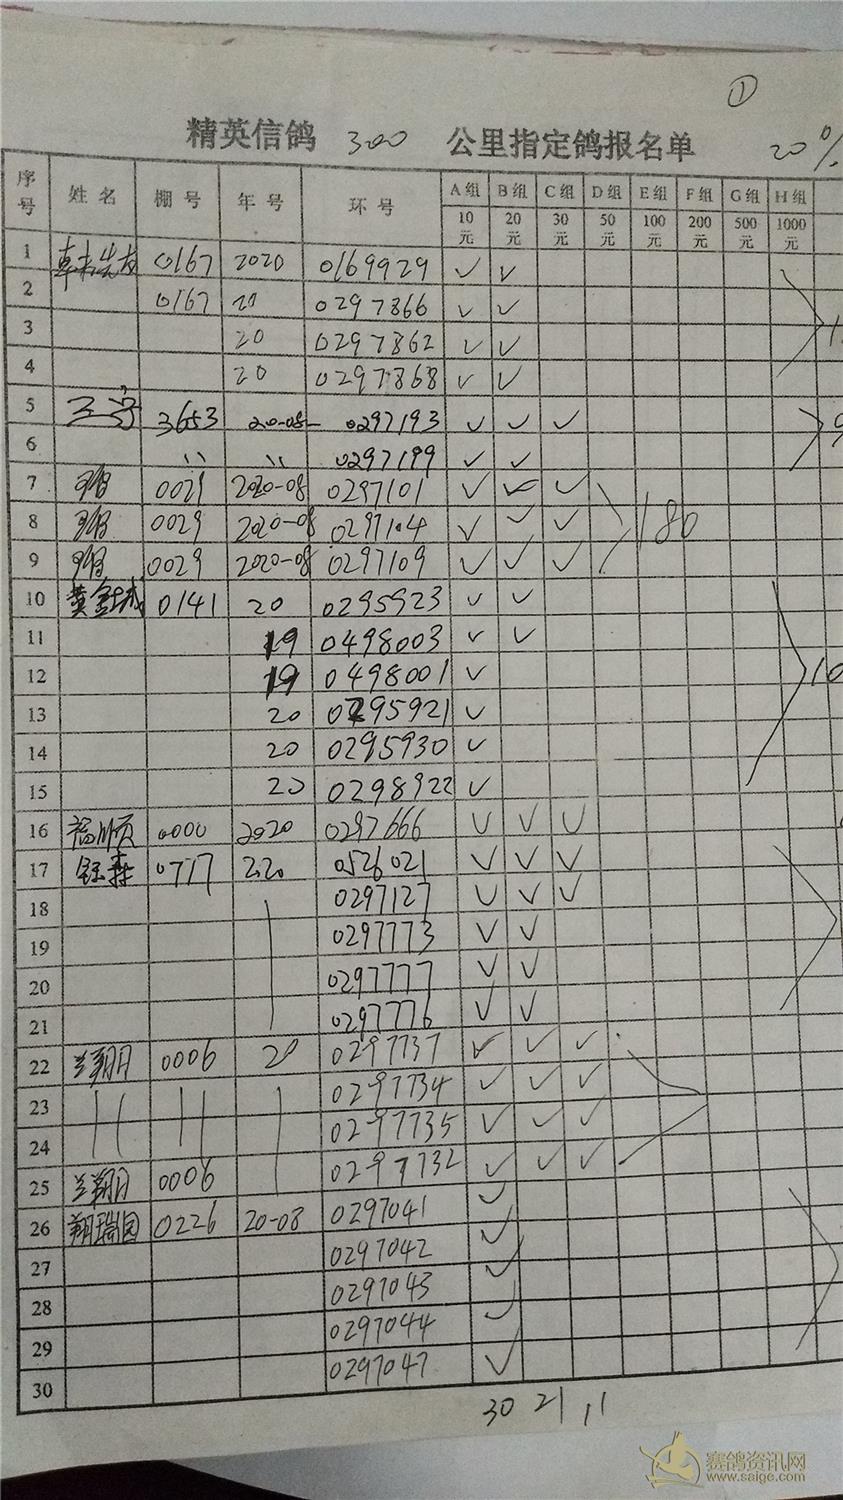 ①
精英信鸽 300 公里指定鸽报名单 20%
序号 姓名 棚号 年号 环号 A组 B组 C组 D组 E组 F组 G组 H组
10元 20元 30元 50元 100元 200元 500元 1000元
1 0167 2020 0169929 ✓ ✓
2 0167 20 0297866 ✓ ✓
3 20 0297862 ✓ ✓
4 20 0297868 ✓ ✓
5 3653 20-08 0297193 ✓ ✓ ✓
6 〃 〃 0297199 ✓ ✓
7 0029 2020-08 0297101 ✓ ✓ ✓
8 0029 2020-08 0297104 ✓ ✓ ✓ 180
9 0029 2020-08 0297109 ✓ ✓ ✓
10 黄金城 0141 20 0295923 ✓ ✓
11 19 0498003 ✓ ✓
12 19 0498001 ✓
13 20 0295921 ✓
14 20 0295930 ✓
15 20 0298922 ✓
16 福顺 0000 2020 0297666 ✓ ✓ ✓
17 钰森 0717 220 0526021 ✓ ✓ ✓
18 0297127 ✓ ✓ ✓
19 0297773 ✓ ✓
20 0297777 ✓ ✓
21 0297776 ✓ ✓
22 兰翔 0006 20 0297737 ✓ ✓ ✓
23 0297734 ✓ ✓ ✓
24 0297735 ✓ ✓ ✓
25 兰翔 0006 0297732 ✓ ✓ ✓
26 翔瑞园 0226 20-08 0297041 ✓
27 0297042 ✓
28 0297043 ✓
29 0297044 ✓
30 0297047 ✓
30 21 11
赛鸽资讯网
www.saige.com